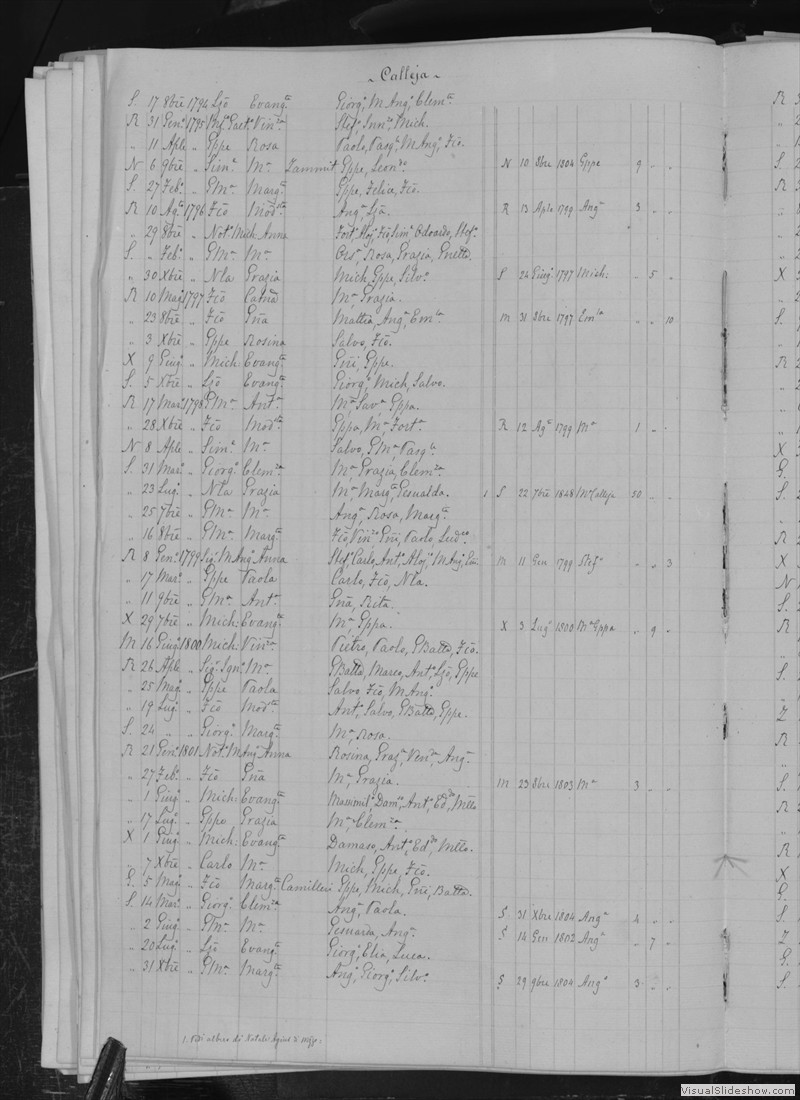 ~ Calleja ~
S. 17 8bre 1794 Ljo Evang.ta Giorg.o M Ang.o Clem.ta
R 31 Gen.o 1795 Gaet.o Vin.za Stef.o Mich.
" 11 Aple " Gppe Rosa Paolo, Pasq.e M Ang.o Fco.
N 6 9bre " Sim.e M.a Zammit Gppe, Leon.do N 10 8bre 1804 Gppe 9 " "
S. 27 Feb.o " GM.a Marg.ta Gppe, Felice, Fco.
R 10 Ag.o 1796 Fco Mod.ta Ang.o Ljo. R 13 Aple 1799 Ang.o 3 " "
" 29 8bre " Not. Mich. Anna Fort.o Aloj.o Fco, Sim.e Odoardo, Stef.o
S. " Feb.o " GM.a M.a Ors.a Rosa, Grazia,
" 30 Xbre " Nla Grazia Mich, Gppe, Silv.o S 24 Giug.o 1797 Mich: " 5 "
R 10 Mag.o 1797 Fco Catna M.a Grazia.
" 23 8bre " Fco Gna Mattea, Ang.o Em.la M 31 8bre 1797 Em.la " " 10
" 3 Xbre " Gppe Rosina Salvo, Fco.
X 9 Giug.o " Mich. Evang.ta Gni, Gppe.
S. 5 Xbre " Ljo Evang.ta Giorg.o Mich, Salvo.
R 17 Mar.o 1798 GM.a Ant.a M.a Sav.a Gppa.
" 28 Xbre " Fco Mod.ta Gppa, M.a Fort.a R 12 Ag.o 1799 M.a 1 " "
N 8 Aple " Sim.e M.a Salvo, GM.a Pasq.le
S. 31 Mar.o " Giorg.o Clem.za M.a Grazia, Clem.za
" 23 Lug.o " Nla Grazia M.a Marg.ta Gesualda. 1 S 22 7bre 1848 M.a Calleja 50 " "
" 25 7bre " GM.a M.a Ang.a Rosa, Marg.ta
" 16 8bre " GM.a Marg.ta Fco, Vin.zo Gni, Paolo,
R 8 Gen.o 1799 Sig. M Ang.o Anna Stef.o Carlo, Ant.o Aloj.o M Ang.o Gni M 11 Gen 1799 Stef.o " " 3
" 17 Mar.o " Gppe Paola Carlo, Fco, Nla.
" 11 9bre " GM.a Ant.a Gna, Rita.
X 29 7bre " Mich: Evang.ta M.a Gppa. X 3 Lug.o 1800 M.a Gppa " 9 "
M 16 Giug.o 1800 Mich: Vin.za Pietro, Paolo, GBatta, Fco.
R 26 Aple " Sig. Ign.o M.a GBatta, Marco, Ant.o Ljo, Gppe
" 25 Mag.o " Gppe Paola Salvo Fco, M Ang.o
" 19 Lug.o " Fco Mod.ta Ant.o Salvo, GBatta, Gppe.
S. 24 " " Giorg.o Marg.ta M.a Rosa.
R 21 Gen.o 1801 Not. M Ang.o Anna Rosina, Graz.a Ven.a Ang.a
" 27 Feb.o " Fco Gna M.a Grazia. M 23 8bre 1803 M.a 3 " "
" 1 Giug.o " Mich: Evang.ta Massimil.o Dam.o Ant.o Ed.do Mtto
" 17 Lug.o " Gppe Grazia M.a Clem.za
X 1 Giug.o " Mich: Evang.ta Damaso, Ant.o Ed.do Mtto.
" 7 Xbre " Carlo M.a Mich, Gppe, Fco.
G. 5 Mag.o " Fco Marg.ta Camilleri Gppe, Mich, Gni, Batta.
S. 14 Mar.o " Giorg.o Clem.za Ang.a Paola. S 31 Xbre 1804 Ang.a 4 " "
" 2 Giug.o " GM.a M.a Ang.a S 14 Gen 1802 Ang.a " 7 "
" 20 Lug.o " Ljo Evang.ta Giorg.o Elia, Luca.
" 31 Xbre " GM.a Marg.ta Ang.o Giorg.o Silv.o S 29 9bre 1804 Ang.o 3 " "
1. Vedi albero di Natale
VisualSlideshow.com